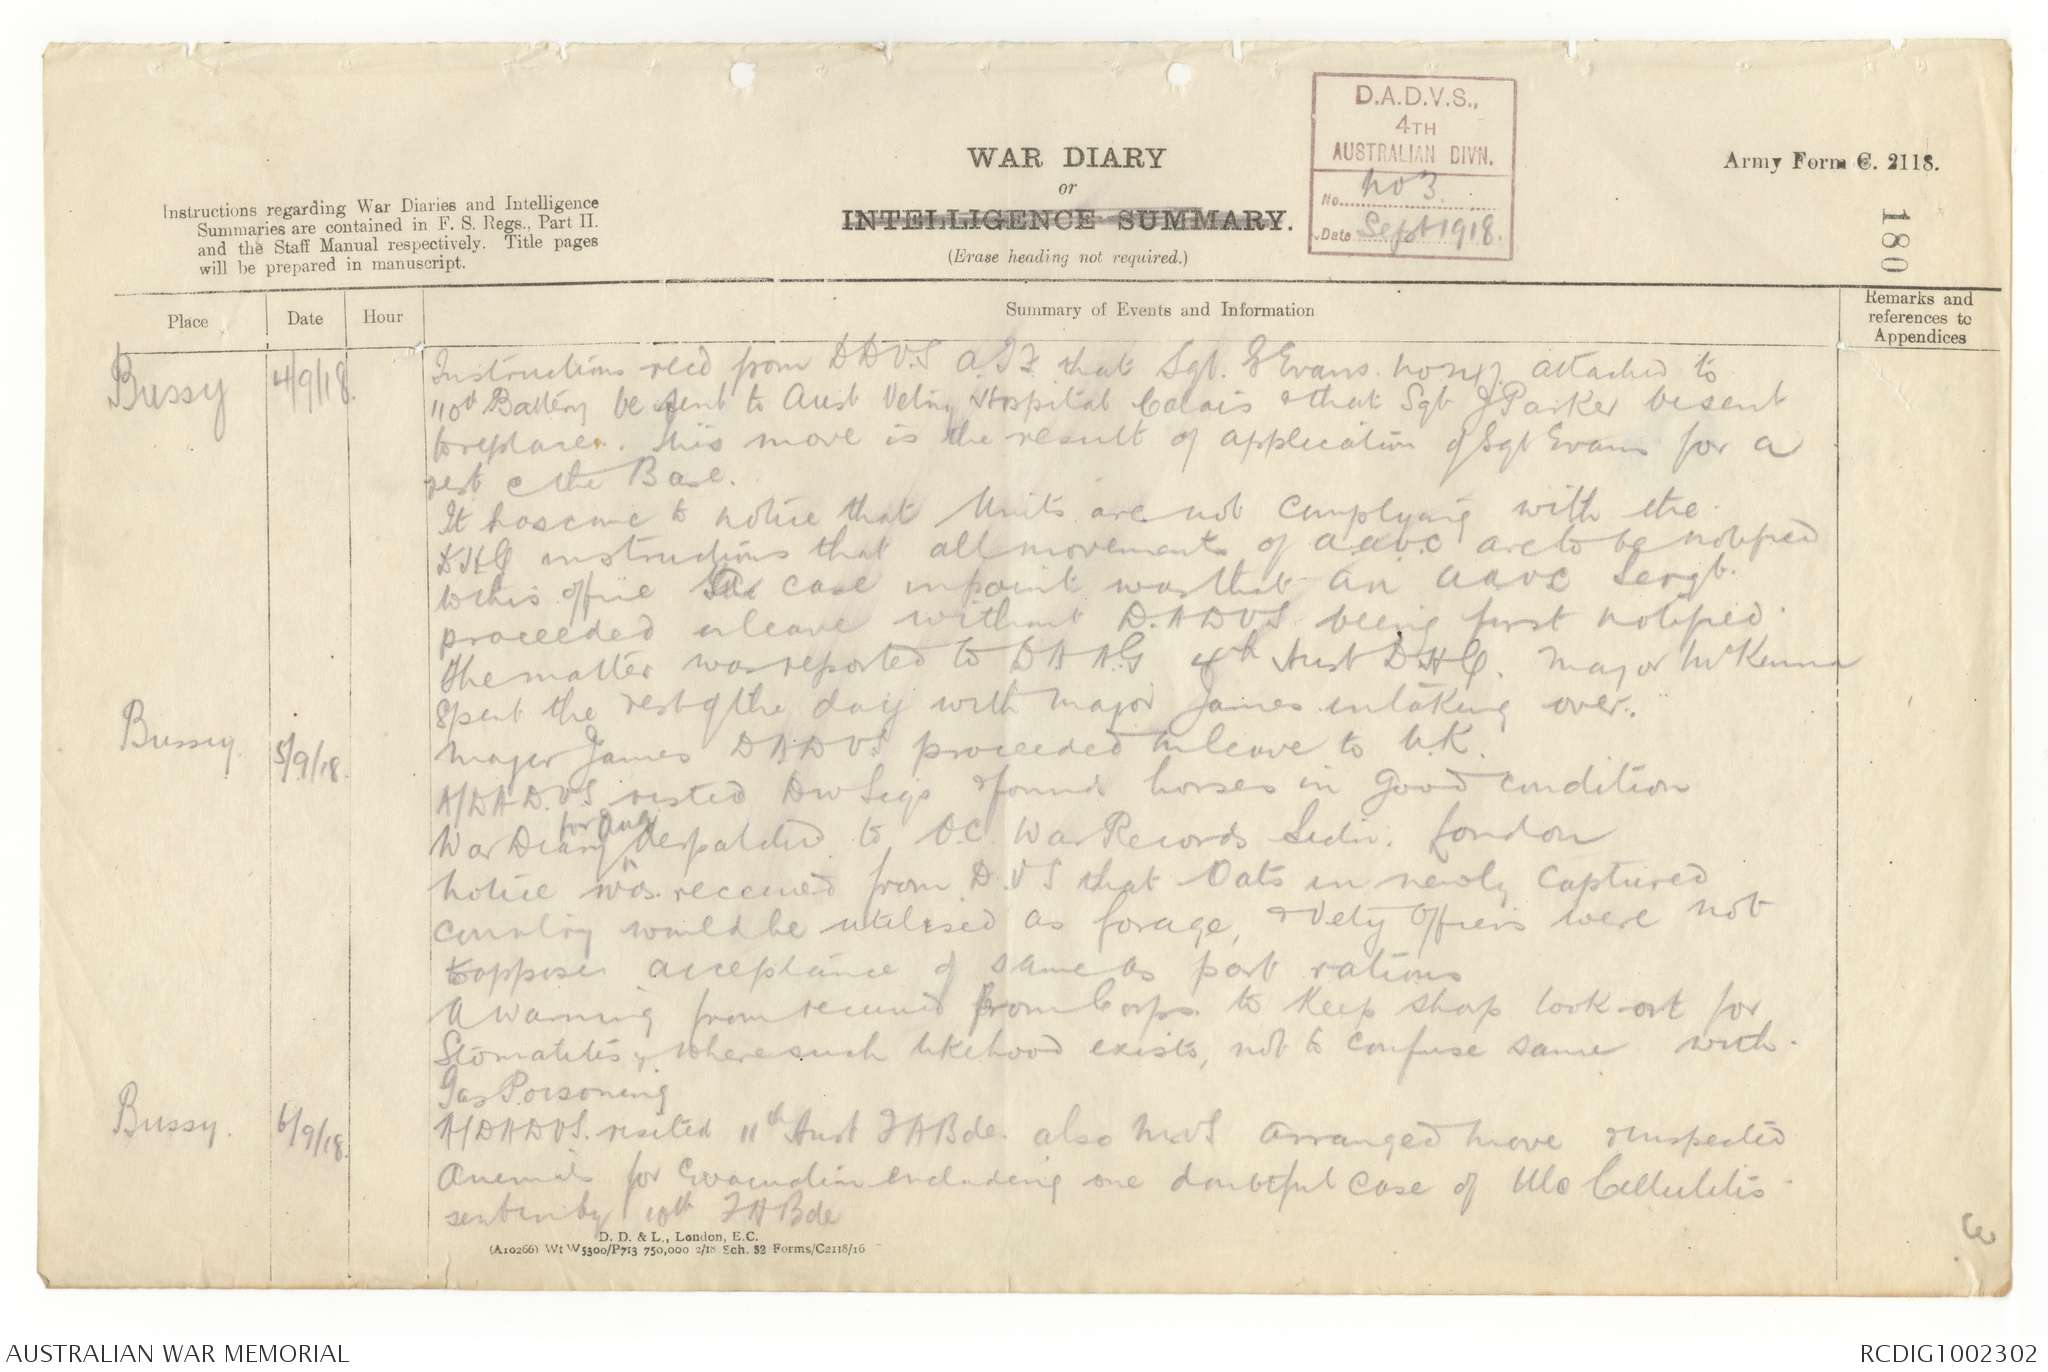 D.A.D.V.S.,
4TH
AUSTRALIAN DIVN.
No. No 3.
Date Sept 1918.
WAR DIARY
or
INTELLIGENCE SUMMARY.
(Erase heading not required.)
Army Form C. 2118.
180
Instructions regarding War Diaries and Intelligence
Summaries are contained in F. S. Regs., Part II.
and the Staff Manual respectively. Title pages
will be prepared in manuscript.
Place
Date
Hour
Summary of Events and Information
Remarks and
references to
Appendices
Bussy 4/9/18. Instructions recd from DDVS A.I.F. that Sgt. Evans attached to
110th Battery be sent to Aust Vetiny Hospital Calais & that Sgt J Parker be sent
to replace. This move is the result of application of Sgt Evans for a
rest @ the Base.
It has come to notice that Units are not complying with the
DHQ instructions that all movements of AAVC are to be notified
to this office case in point was that an AAVC Sergt.
proceeded on leave without D.ADVS. being first notified.
The matter was reported to DAAG 4th Aust DHQ. Major McKenna
spent the rest of the day with Major James in taking over.
Bussy. 5/9/18. Major James DADVS proceeded on leave to U.K.
A/DAD.VS visited Div Sigs & found horses in good condition
War Diary for Aug despatched to O.C. War Records Sectn. London
Notice was received from D.VS that Oats in newly captured
country would be utilised as forage, & Vety Officers were not
to oppose acceptance of same as part rations
A warning from received from Corps to keep shap look-out for
Stomatitis, & where such likehood exists, not to confuse same with
Gas Poisoning
Bussy. 6/9/18. A/DADVS. visited 11th Aust FABde. also MVS arranged move & inspected
Animals for Evacuation including one doubtful case of Ulc Cellulitis
sent in by 10th FABde
D. D. & L., London, E.C.
(A10266) Wt W5300/P713 750,000 2/18 Sch. 52 Forms/C2118/16
3
AUSTRALIAN WAR MEMORIAL
RCDIG1002302